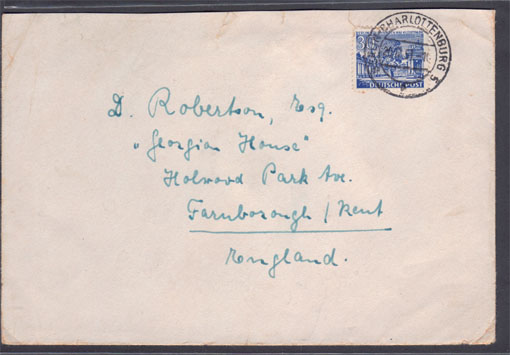 CHARLOTTENBURG 5
DEUTSCHE POST
D. Robertson, Esq.
„Georgian House"
Holwood Park Ave.
Farnborough / Kent
England.